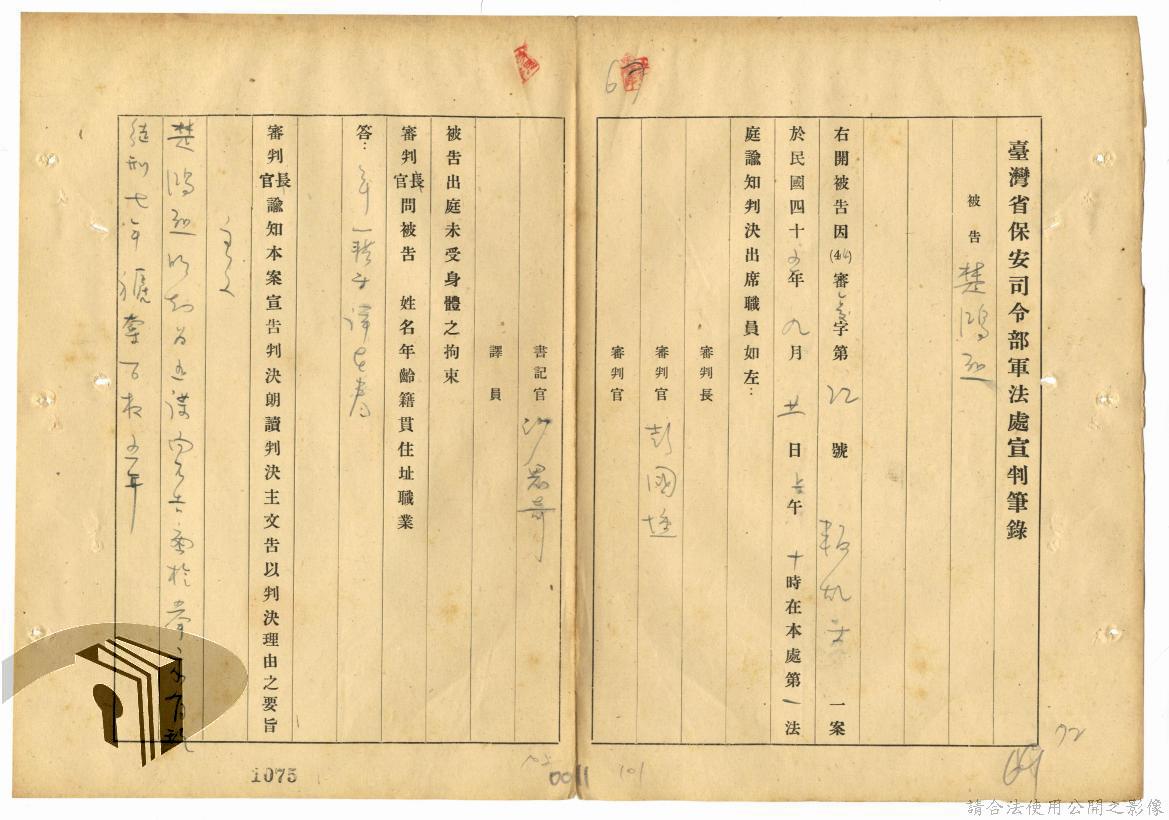 臺灣省保安司令部軍法處宣判筆錄
被告 楚鴻烈
右開被告因(44)審字第 號 叛亂案 一案
於民國四十五年 九月 廿日 上午 十時在本處第一法
庭諭知判決出席職員如左：
審判長
審判官 彭國壎
審判官
書記官
譯員
被告出庭未受身體之拘束
審判長官問被告 姓名年齡籍貫住址職業
答：年
審判長官諭知本案宣告判決朗讀判決主文告以判決理由之要旨
主文
楚鴻烈明知為匪諜而不告密檢舉 處有期
徒刑七年褫奪公權五年
67
72
1075
0011
101
請合法使用公開之影像